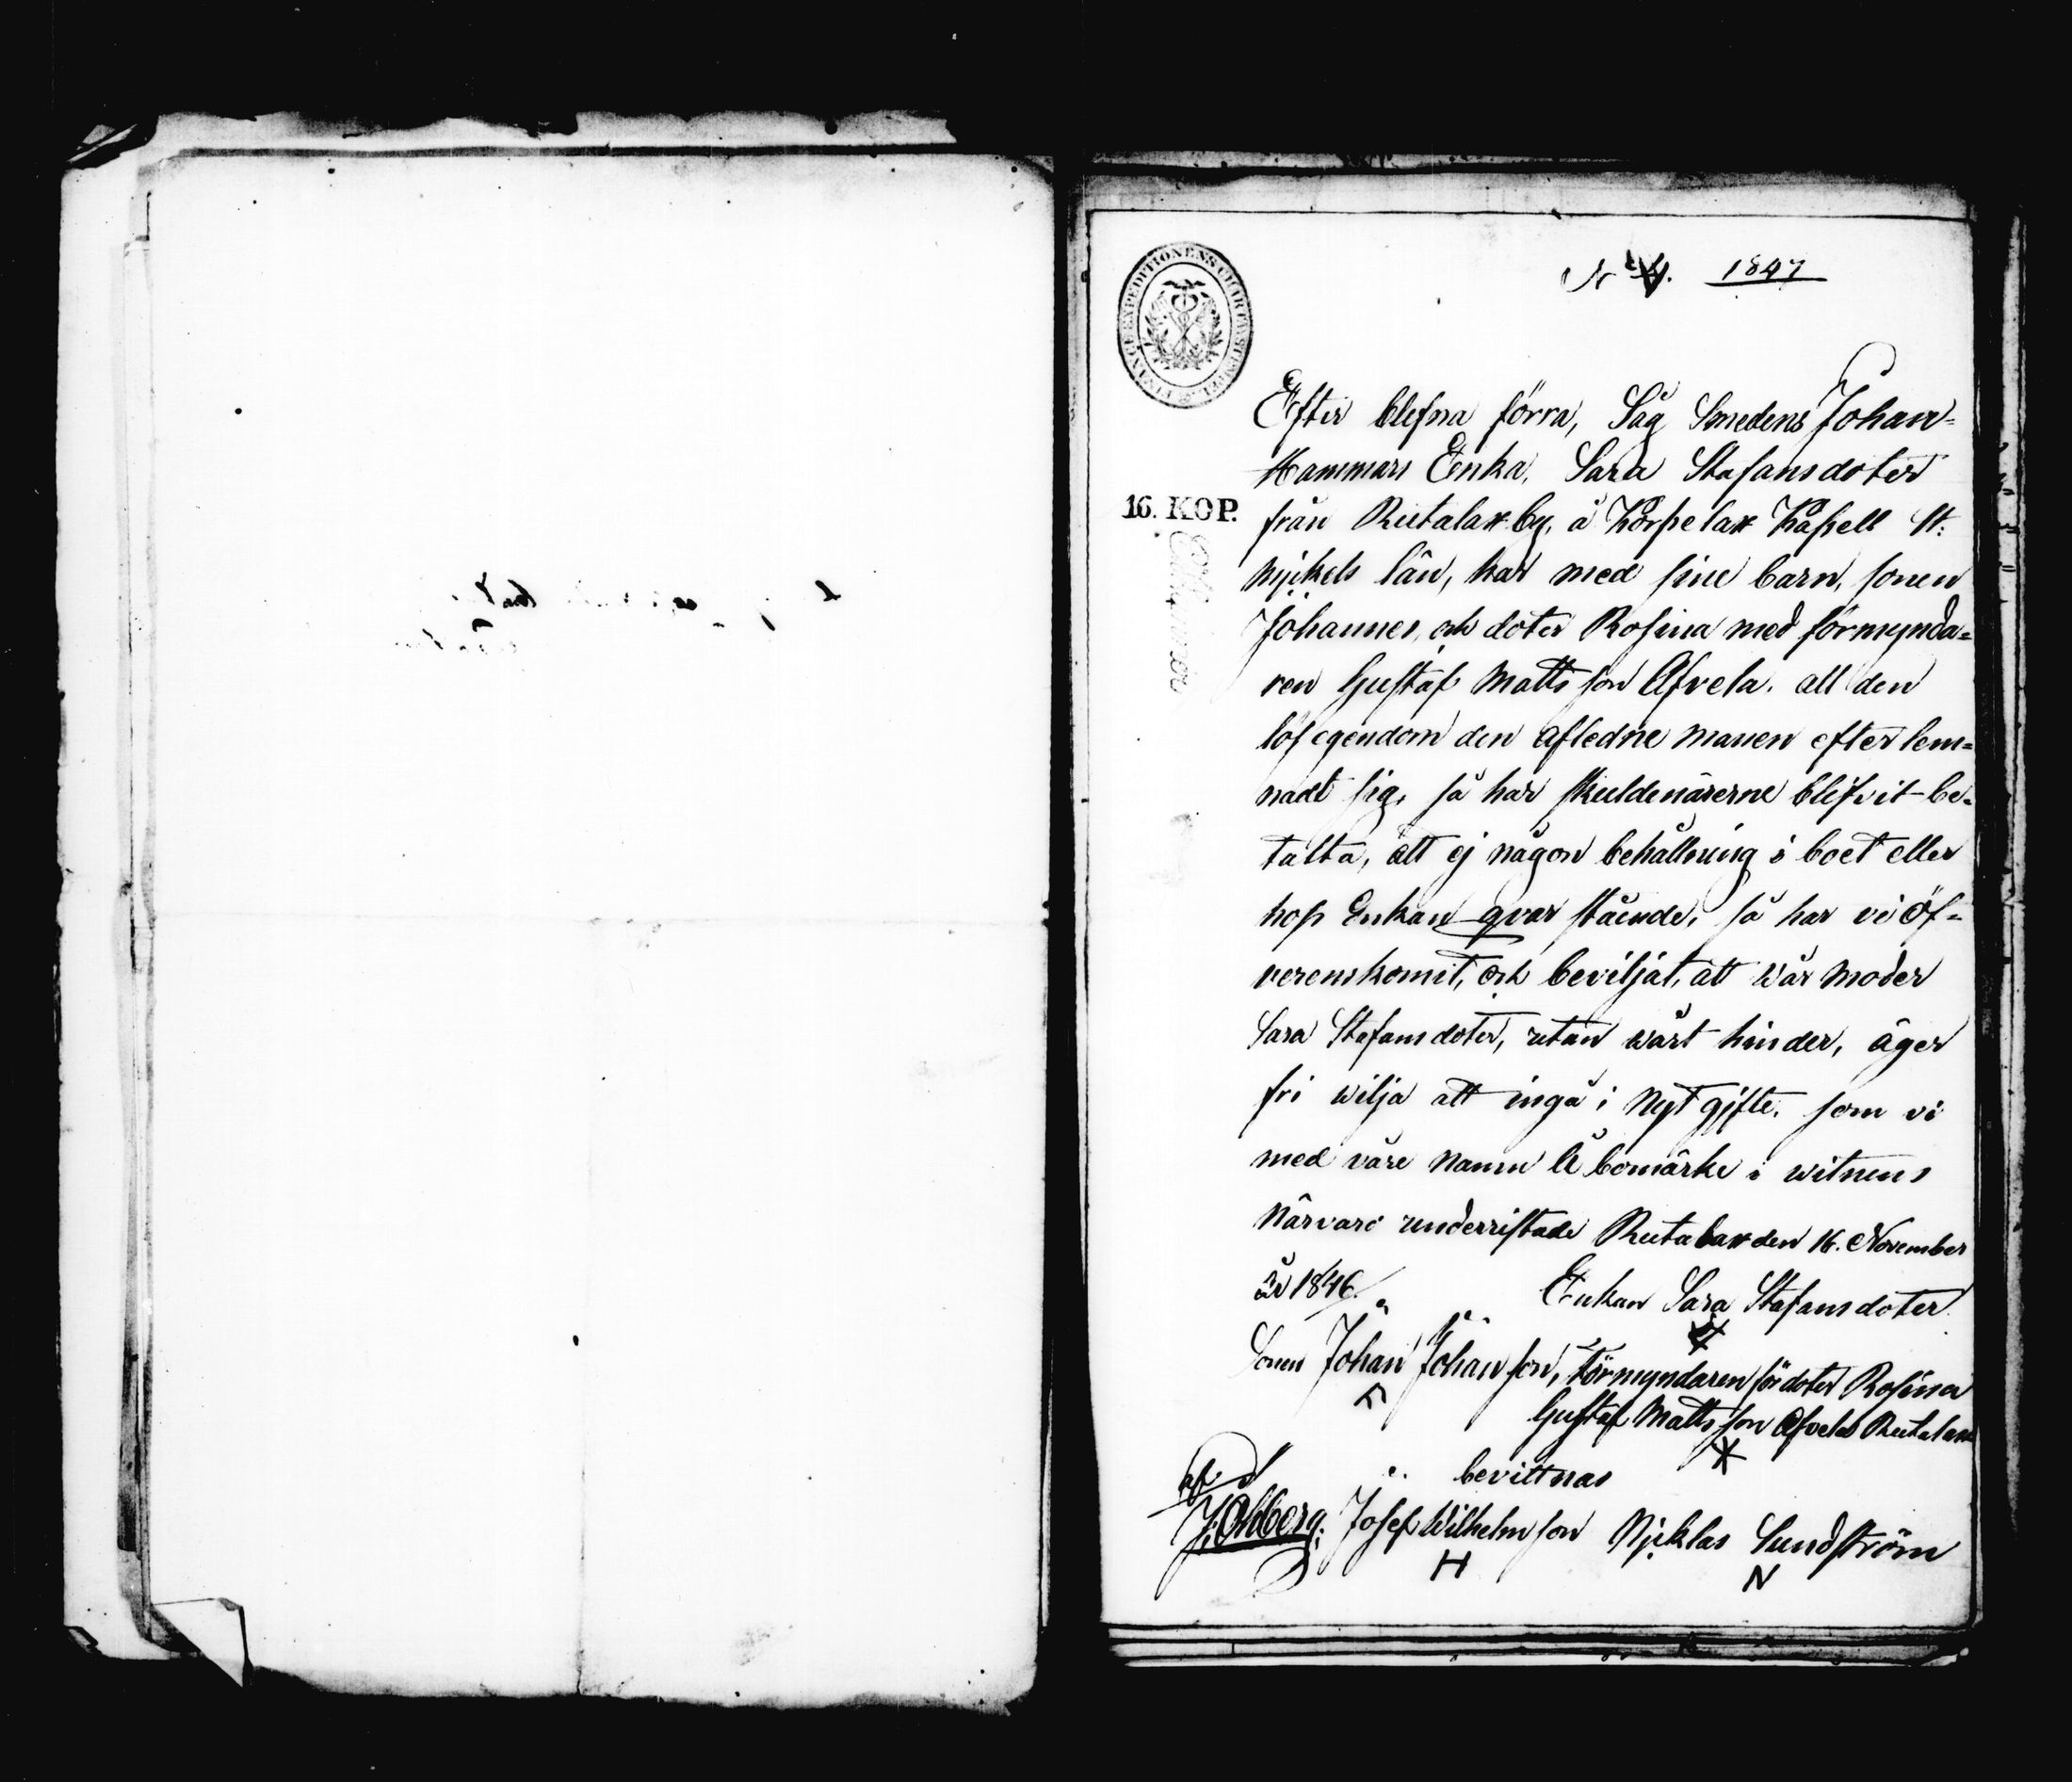 1847
FINANCE EXPEDITIONENS CHARTÆ STEMPEL
Efter blefna förra, Såg Smedens Johan-
Hammars Enka, Sara Stafansdoter
16. KOP.
från Rutalax by, å Korpelax Kapell St:
Myikels län, har med sine barn, sonen
Johannes, och doter Rosina med förmynda=
ren Gustaf Matts son Afvela. all den
lös egendom den afledne manen efter lem=
nadt sig, så har skuldenärerne blifvit be-
talta, att ej någon behållning i boet eller
hos Enkan qvar stående, så har vi öf-
verenskomit, och beviljat, att wår moder
Sara Stafansdoter, utan wårt hinder, äger
fri wilja att ingå i nyt gifte, som vi
med våre namn & bomärke i witnens
närvaro underristade Rutalax den 16. November
år 1846.
Enkan Sara Stafansdoter.
Sonen Johan Johan son, Förmyndaren för doter Rosina
Gustaf Matts son Afvela Rutalax
bevittnas
af
J. Ohlberg. Josef Wilhelm son Njiklas Sundström
H N